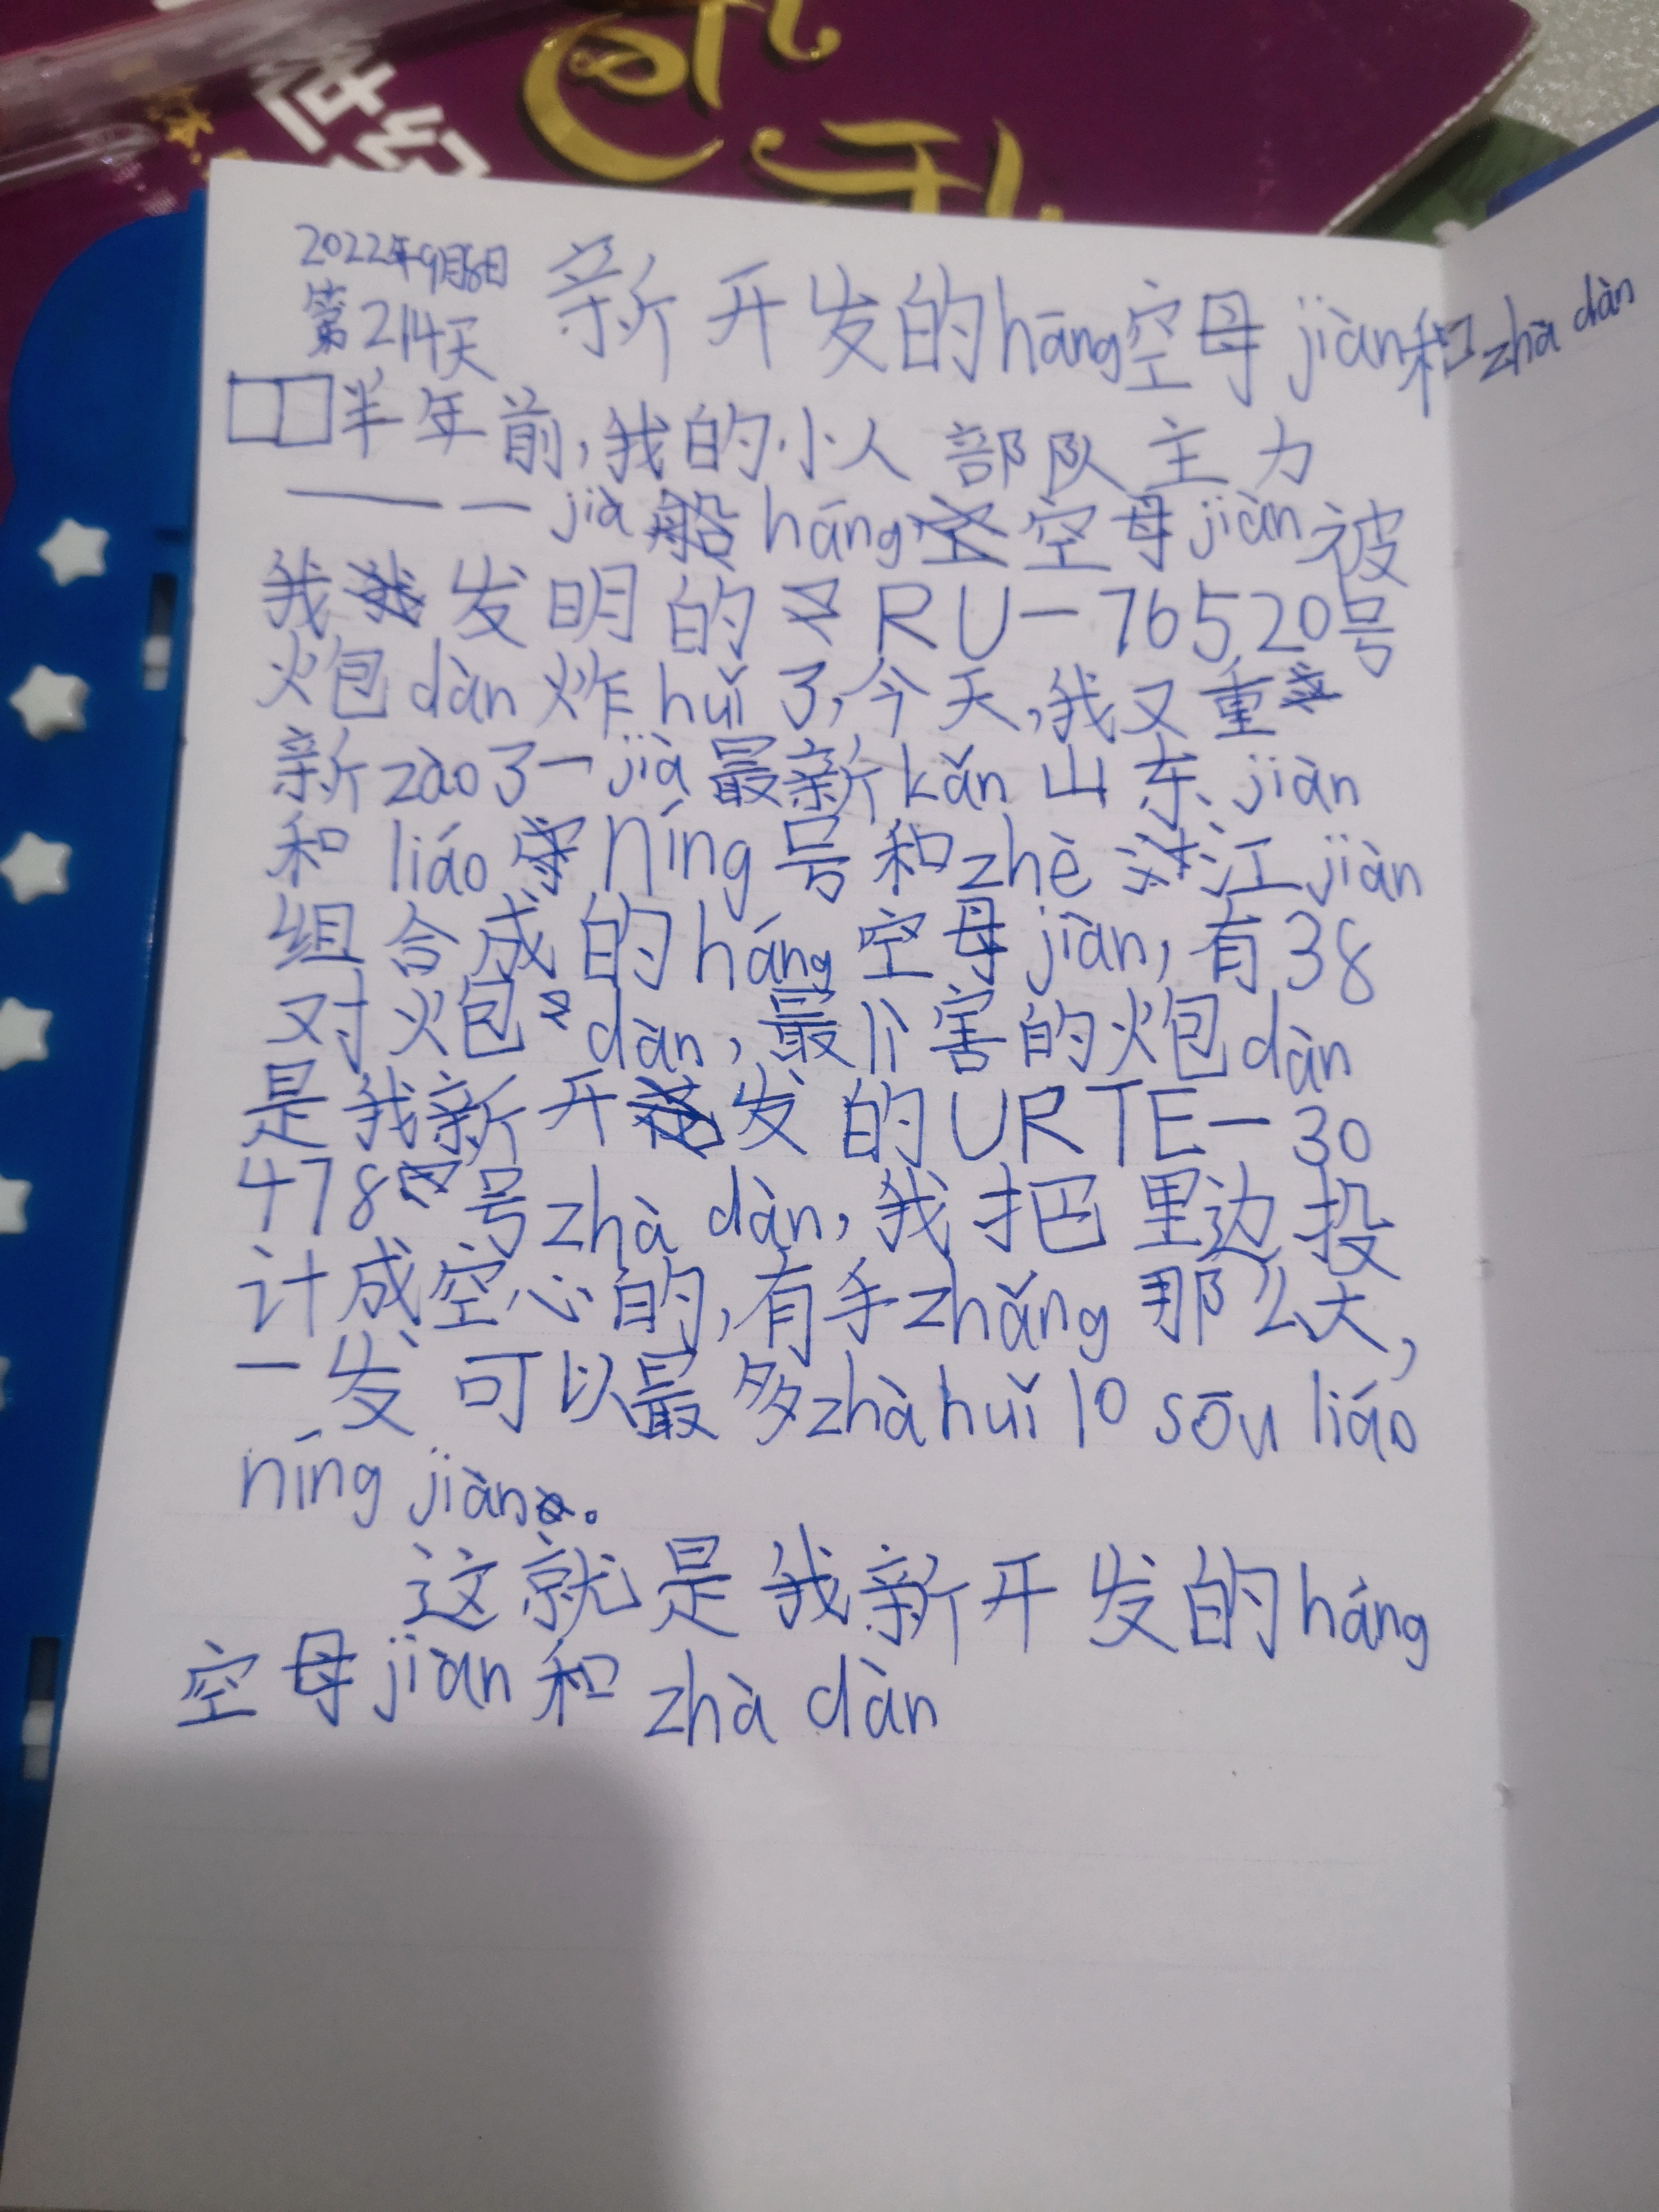 2022年9月6日
第214天
新开发的hāng空母jiàn和zhà dàn
半年前,我的小人部队主力
——一jià háng空母jiàn被
我发明的RU-76520号
火包dàn炸huǐ了,今天,我又重
新zào了一jià最新kǎn山东jiàn
和liáo níng号和zhè江jiàn
组合成的háng空母jiàn,有38
对火包dàn,最厉害的火包dàn
是我新开发的URTE-30
478号zhà dàn,我把里边投
计成空心的,有手zhǎng那么大,
一发可以最多zhà huǐ 10 sōu liáo
níng jiàn。
这就是我新开发的háng
空母jiàn和zhà dàn